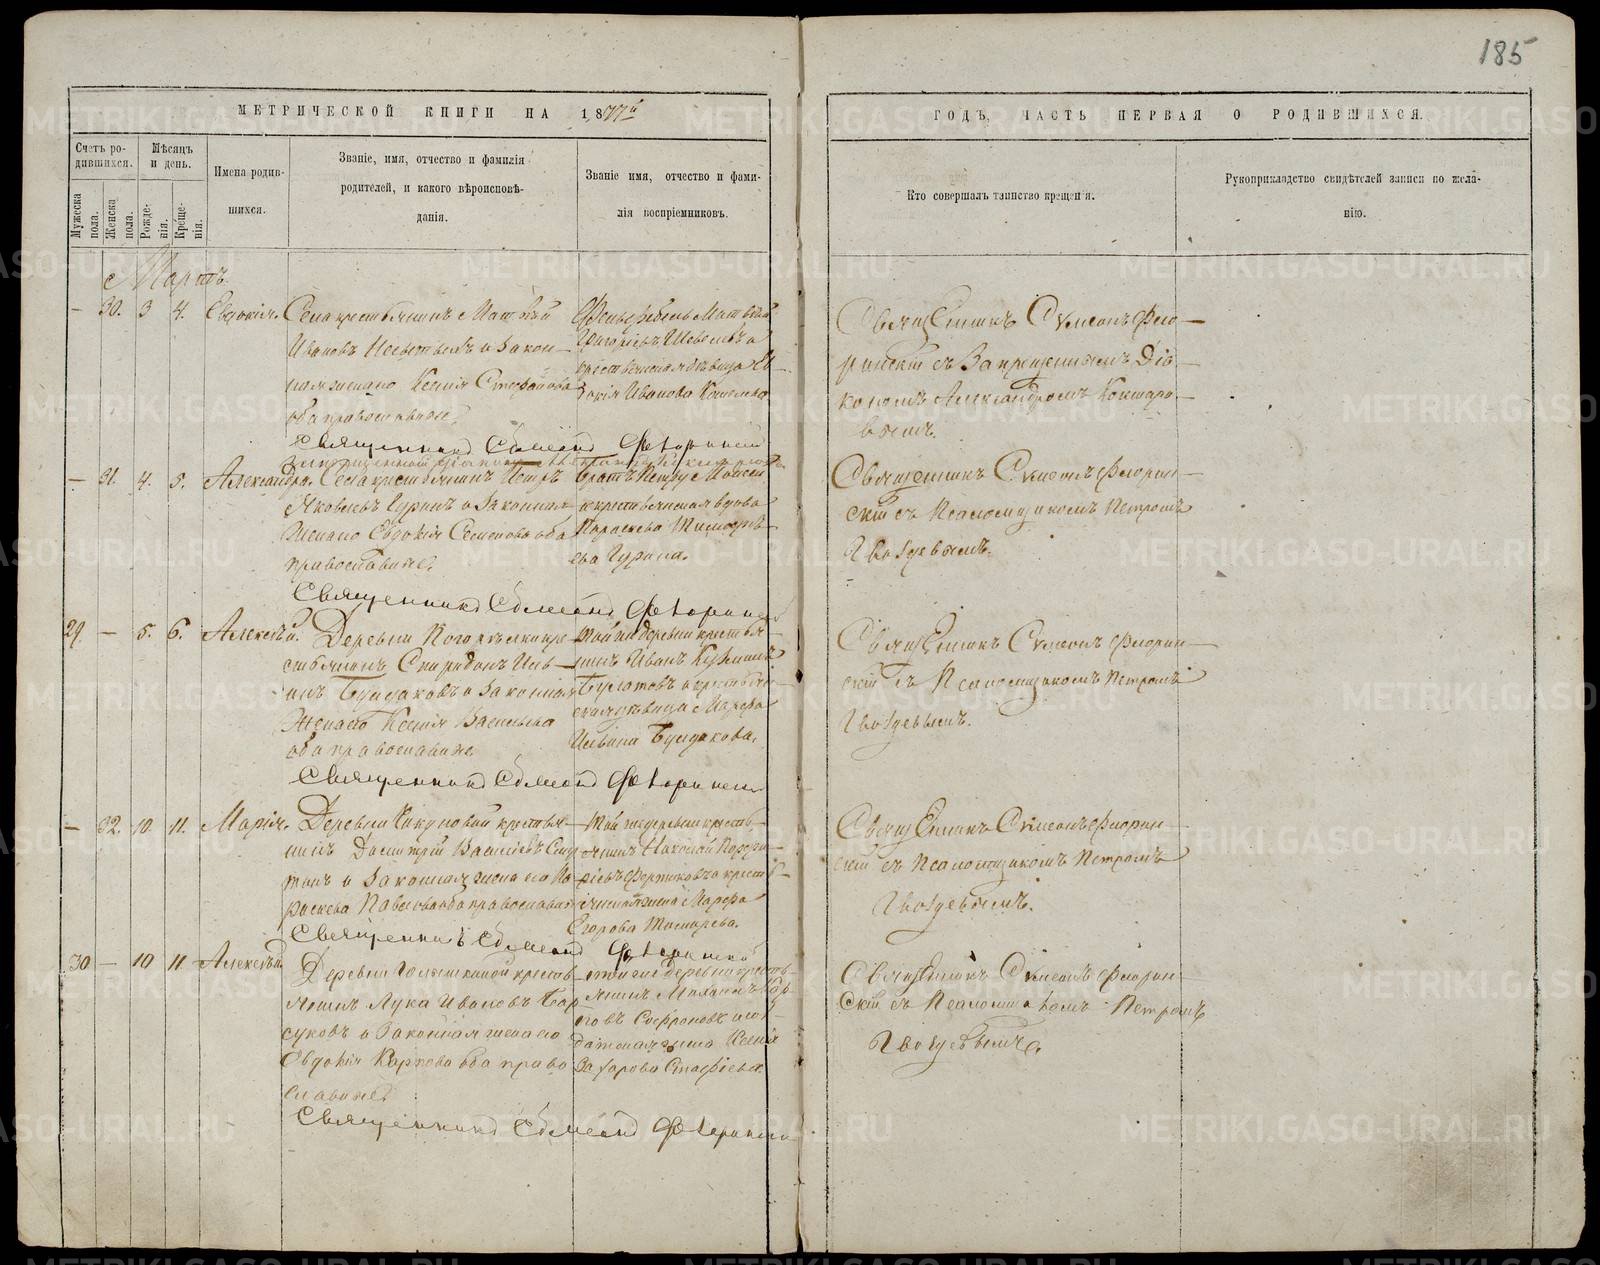 185
МЕТРИЧЕСКОЙ КНИГИ НА 1877й
ГОДЪ, ЧАСТЬ ПЕРВАЯ О РОДИВШИХСЯ.
Счетъ родившихся.
Мужеска пола.
Женска пола.
Мѣсяцъ и день.
Рожденія.
Крещенія.
Имена родившихся.
Званіе, имя, отчество и фамилія
родителей, и какого вѣроисповѣ-
данія.
Званіе имя, отчество и фами-
лія воспріемниковъ.
Кто совершалъ таинство крещенія.
Рукоприкладство свидѣтелей записи по жела-
нію.
Мартъ
— 30. 3 4. Евдокія.
Села крестьянинъ Матѳей
Ивановъ и закон-
ная жена его Ксенія Стефанова
оба православные.
Священникъ Симеонъ Флоринскій
Матвѣй
Григорьевъ Шевелевъ и
крестьянская дѣвица Ев-
докія Иванова
Священникъ Сѵмеонъ Фло-
ринскій съ Запрещеннымъ Діа-
кономъ Александромъ Кокшаро-
вымъ.
— 31. 4. 5. Александра.
Села крестьянинъ Петръ
Яковлевъ Гуринъ и законная
жена его Евдокія Семенова оба
православные.
Священникъ Симеонъ Флоринскій
и крестьянская вдова
Параскева Тимофѣе-
ва Гурина.
Священникъ Сѵмеонъ Флорин-
скій съ Псаломщикомъ Петромъ
Гвоздевымъ.
29. — 5. 6. Алексѣй.
Деревни кре-
стьянинъ Спиридонъ Иль-
инъ Бундаковъ и законная
жена его Ксенія Васильева
оба православные.
Священникъ Симеонъ Флоринскій
Той же деревни крестья-
нинъ Иванъ Кузьминъ
Булатовъ и крестьян-
ская дѣвица Марѳа
Ильина Бундакова.
Священникъ Сѵмеонъ Флорин-
скій съ Псаломщикомъ Петромъ
Гвоздевымъ.
— 32. 10. 11. Марія.
Деревни крестья-
нинъ Димитрій Васильевъ
и законная жена его Па-
раскева Павлова оба православные
Священникъ Симеонъ Флоринскій
Той же деревни кресть-
янинъ Николай Порфи-
рьевъ и кресть-
Марѳа
Егорова
Священникъ Сѵмеонъ Флорин-
скій съ Псаломщикомъ Петромъ
Гвоздевымъ.
30 — 10 11 Алексѣй.
Деревни кресть-
янинъ Лука Ивановъ Бар-
суковъ и законная жена его
Евдокія Карпова оба право-
славные.
Священникъ Симеонъ Флоринскій
деревни кресть-
янинъ Михаилъ Кар-
повъ Софроновъ и сол-
датская жена Ксенія
Захарова
Священникъ Сѵмеонъ Флорин-
скій съ Псаломщикомъ Петромъ
Гвоздевымъ.
METRIKI.GASO-URAL.RU